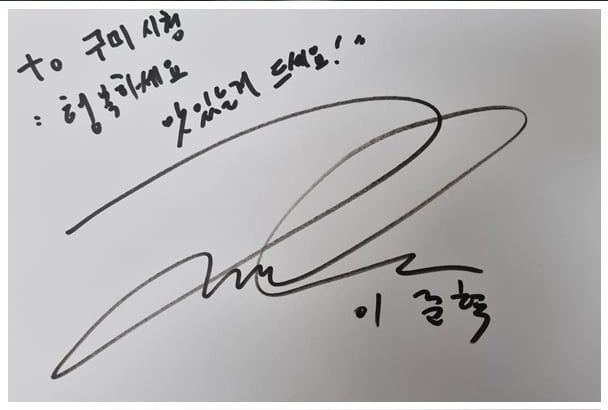 To 구미시청
: 행복하세요
맛있게 드세요!"
이